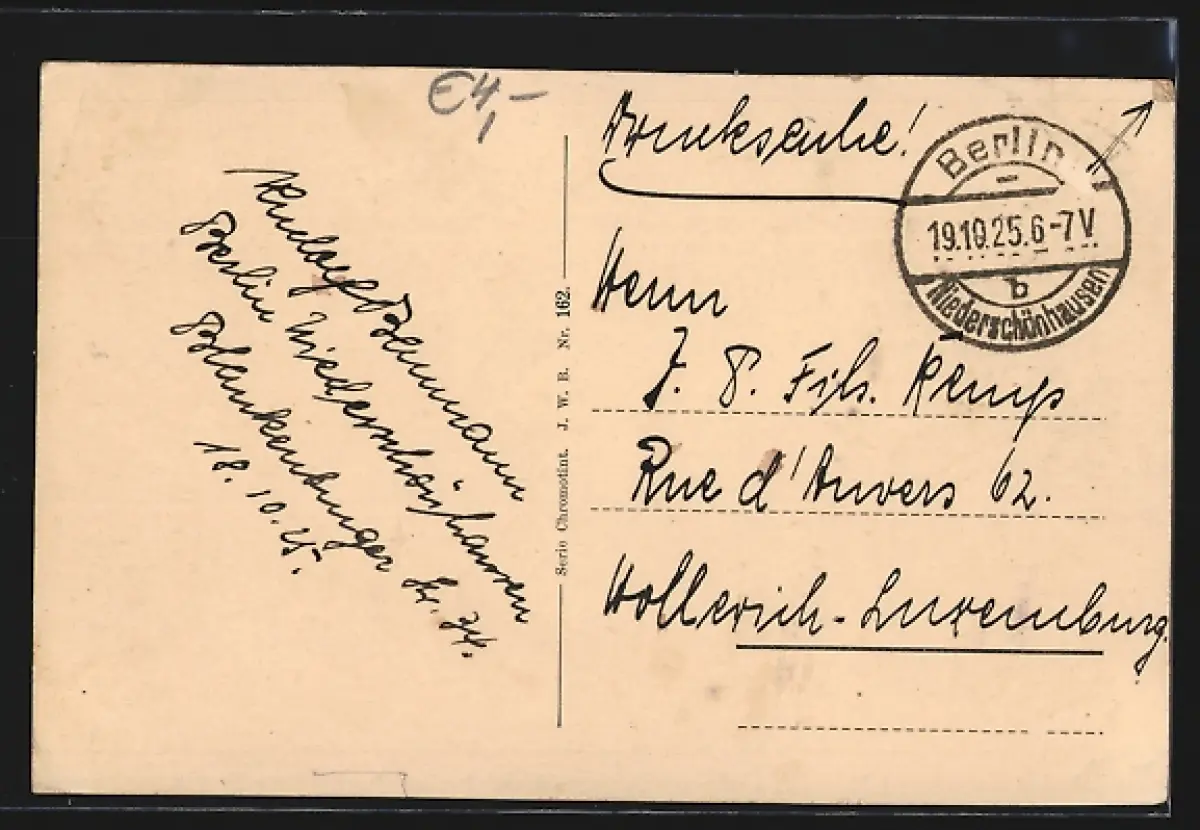 €4,-
Rudolf Baumann
Berlin Niederschönhausen
Blankenburger Str. 34.
18. 10. 25.
Serie Chromotint. J. W. B. Nr. 162.
Drucksache!
Berlin
19.10.25.6-7V
b
Niederschönhausen
Herrn
J. P. Fils. Kemp
Rue d'Anvers 62.
Hollerich-Luxemburg.